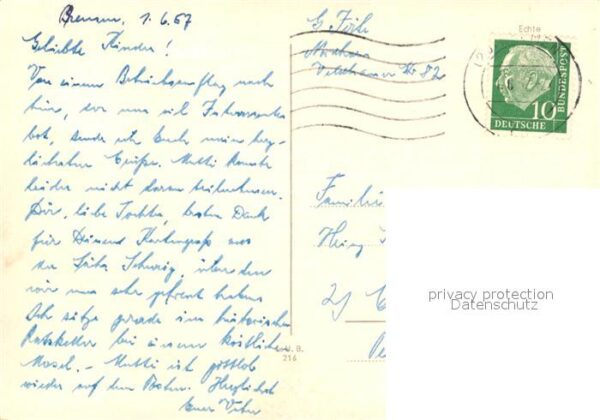 Bremen, 1.6.67
Geliebte Kinder!
Von einem Betriebsausflug nach
hier, der uns viel Interessantes
bot, sende ich Euch meine herz-
lichsten Grüße. Mutti konnte
leider nicht daran teilnehmen.
Dir, liebe Tochter, besten Dank
für Deinen Kartengruß aus
der Schweiz, über den
wir uns sehr gefreut haben.
Ich sitze gerade im historischen
Ratskeller bei einem köstlichen
Mosel. - Mutti ist gottlob
wieder auf dem Posten. Herzlichst
Euer Vater
G.
82
Echte
10
DEUTSCHE
BUNDESPOST
Familie
Heinz
216
privacy protection
Datenschutz